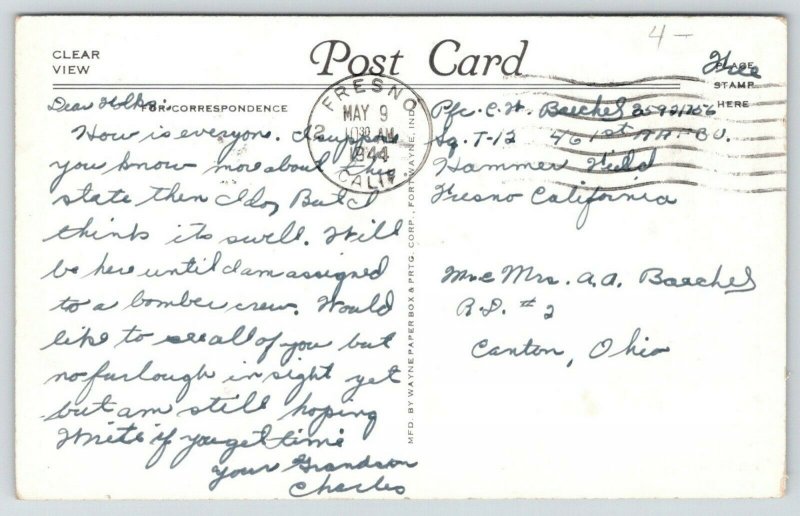 4-
CLEAR
VIEW
Post Card
Free
PLACE
STAMP
HERE
FOR CORRESPONDENCE
FRESNO
CALIF.
MAY 9
10 30 AM
1944
12
Dear Folks:
How is everyone. I suppose
you know more about this
state then I do, But I
think its swell. Will
be here until I am assigned
to a bomber crew. Would
like to see all of you but
no furlough in sight yet
but am still hoping
Write if you get time
your Grandson
Charles
MFD. BY WAYNE PAPER BOX & PRTG. CORP., FORT WAYNE, IND.
Pfc. C. H. Baechel
Sq. T-12 461st B.U.
Hammer Field
Fresno California
Mr & Mrs. A. A. Baechel
R.D. # 2
Canton, Ohio